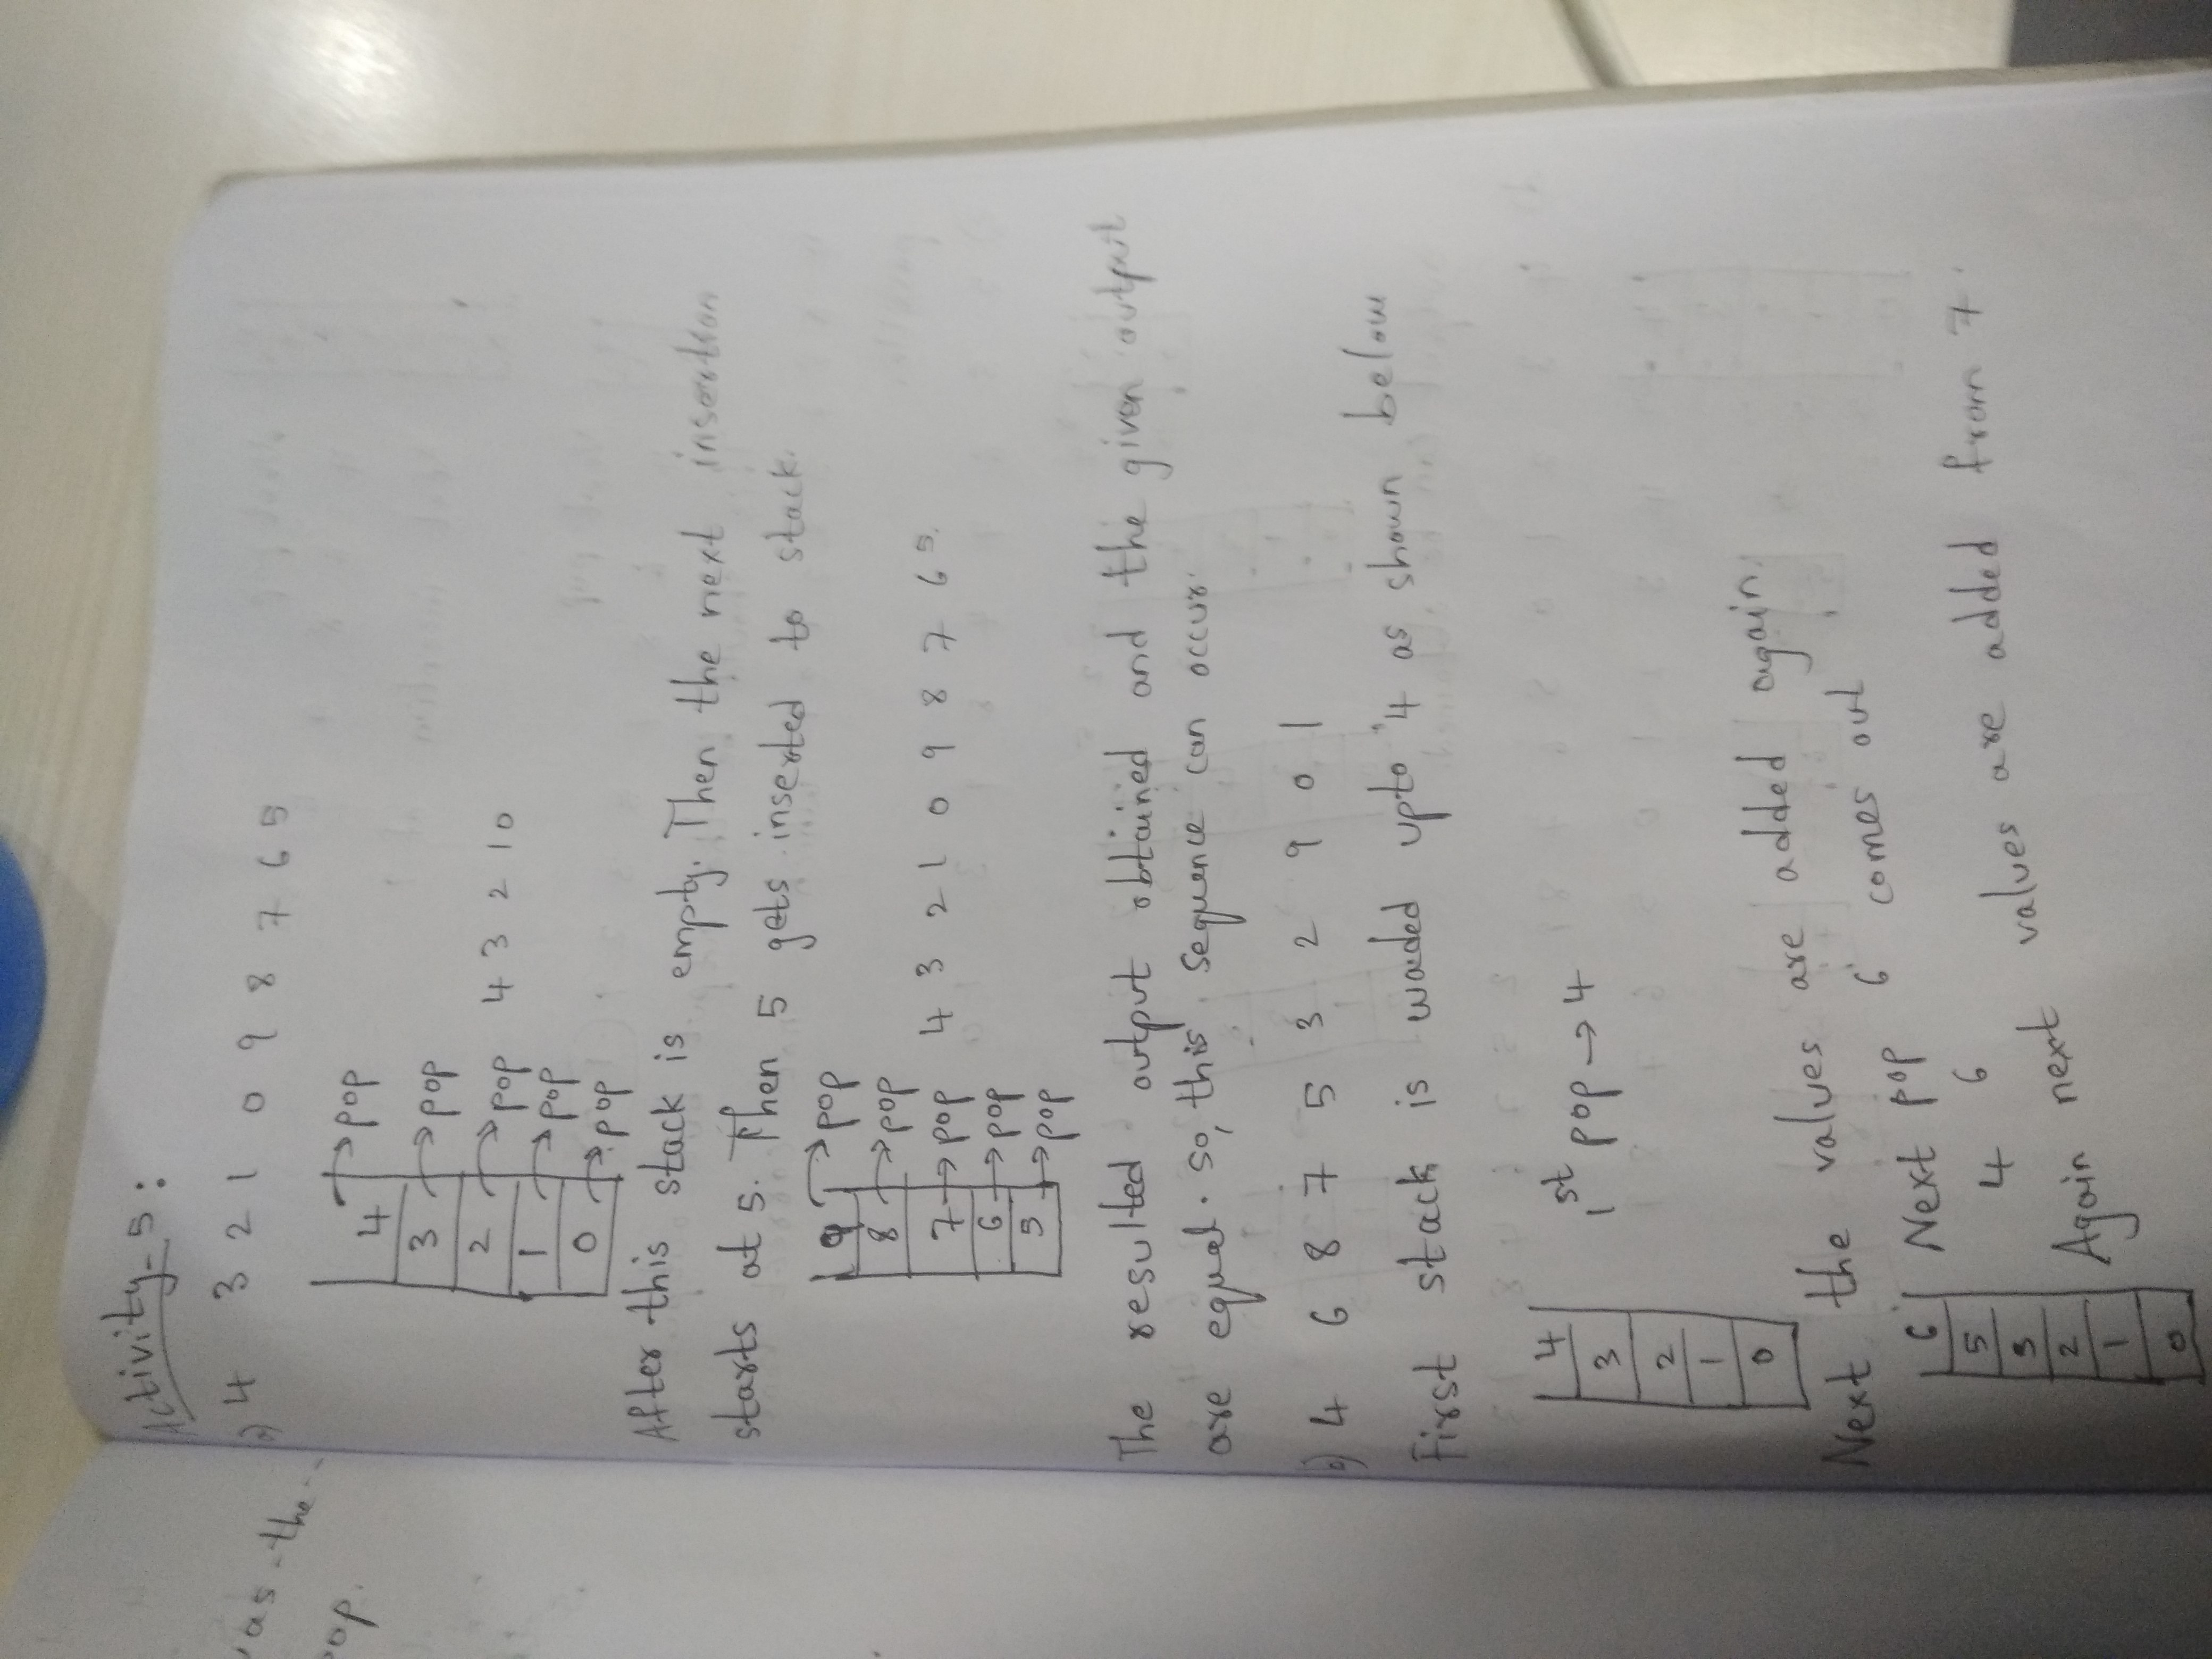 Activity-5:
a) 4 3 2 1 0 9 8 7 6 5
4 → pop
3 → pop
2 → pop 4 3 2 1 0
1 → pop
0 → pop
After this stack is empty. Then the next insertion
starts at 5. Then 5 gets inserted to stack.
9 → pop
8 → pop
7 → pop 4 3 2 1 0 9 8 7 6 5.
6 → pop
5 → pop
The resulted output obtained and the given output
are equal. so, this sequence can occur.
b) 4 6 8 7 5 3 2 9 0 1
First stack is waded upto 4 as shown below
4
3 1st pop → 4
2
1
0
Next the values are added again.
6 Next pop 6 comes out
5 4 6
3 Again next values are added from 7.
2
1
0
as the
pop.